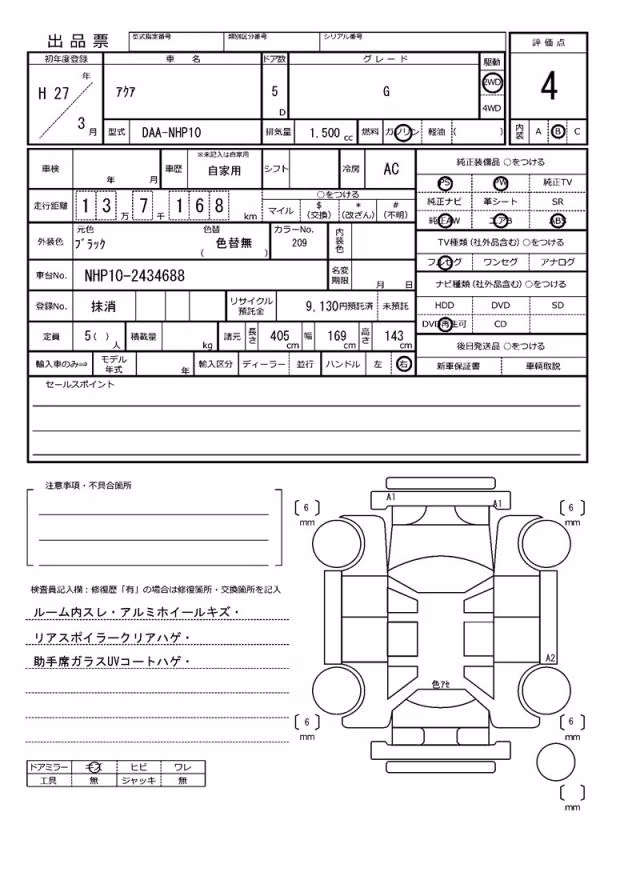 出品票
型式指定番号 類別区分番号 シリアル番号
評価点
初年度登録 車名 ドア数 グレード 駆動
H 27 年 アクア 5 D G 2WD 4
3 月 4WD
型式 DAA-NHP10 排気量 1.500 cc 燃料 ガソリン 軽油 ( ) 内装 A B C
車検 年 月 車歴 ※未記入は自家用 自家用 シフト 冷房 AC
純正装備品 ○をつける
PS PW 純正TV
純正ナビ 革シート SR
純正AW エアB ABS
走行距離 1 3 万 7 千 1 6 8 km
○をつける
マイル $(交換) *(改ざん) #(不明)
外装色 元色 ブラック 色替 ( 色替無 ) カラーNo. 209 内装色
TV種類(社外品含む)○をつける
フルセグ ワンセグ アナログ
車台No. NHP10-2434688 名変期限 月 日
ナビ種類(社外品含む)○をつける
HDD DVD SD
DVD再生可 CD
登録No. 抹消 リサイクル預託金 9,130円預託済 未預託
定員 5( ) 人 積載量 kg 諸元 長さ 405 cm 幅 169 cm 高さ 143 cm
後日発送品 ○をつける
新車保証書 車輌取説
輸入車のみ⇒ モデル年式 年 輸入区分 ディーラー 並行 ハンドル 左 右
セールスポイント
注意事項・不具合箇所
A1 A1
6 mm 6 mm
検査員記入欄:修復歴「有」の場合は修復箇所・交換箇所を記入
ルーム内スレ・アルミホイールキズ・
リアスポイラークリアハゲ・
助手席ガラスUVコートハゲ・
A2
色アセ
6 mm 6 mm
ドアミラー キズ ヒビ ワレ
工具 無 ジャッキ 無
mm